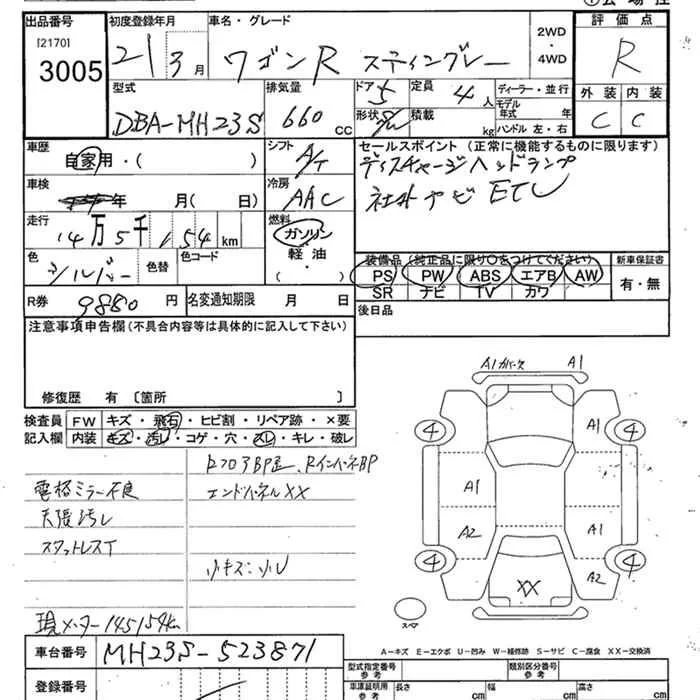 出品番号 初度登録年月 車名・グレード 2WD・4WD 評価点
[2170]
3005 21 3月 ワゴンR スティングレー R
型式 排気量 ドア 定員 ディーラー・並行 外装 内装
DBA-MH23S 660cc 5 4人 モデル年式 年 C C
形状 積載 kg ハンドル 左・右
車歴 シフト セールスポイント (正常に機能するものに限ります)
自家用・( ) A/T ディスチャージヘッドランプ
車検 年 月( 日) 冷房 社外ナビ ETC
AAC
走行 燃料
14万5千154km ガソリン 装備品 (純正品に限り○をつけてください) 新車保証書
色 色替 色コード 軽油 PS PW ABS エアB AW 有・無
シルバー ( ) SR ナビ TV カワ
R券 9880円 名変通知期限 月 日 後日品
注意事項申告欄 (不具合内容等は具体的に記入して下さい)
修復歴 有 〔箇所 〕
A1 A1
検査員 FW キズ・飛石・ヒビ割・リペア跡・×要
記入欄 内装 キズ・汚レ・コゲ・穴・スレ・キレ・破レ
4 A1 4
RフロアBP RインパネBP
電格ミラー不良 エンドパネルXX A1
天張汚レ A2 A1
スタットレスT
小キズ 4 A2 4
XX
スペア
現メーター145154km
A-キズ E-エクボ U-凹み W-補修跡 S-サビ C-腐食 XX-交換済
車台番号 MH23S-523871
型式指定番号 参考 類別区分番号 参考
登録番号 車庫証明用 参考 長さ cm 幅 cm 高さ cm